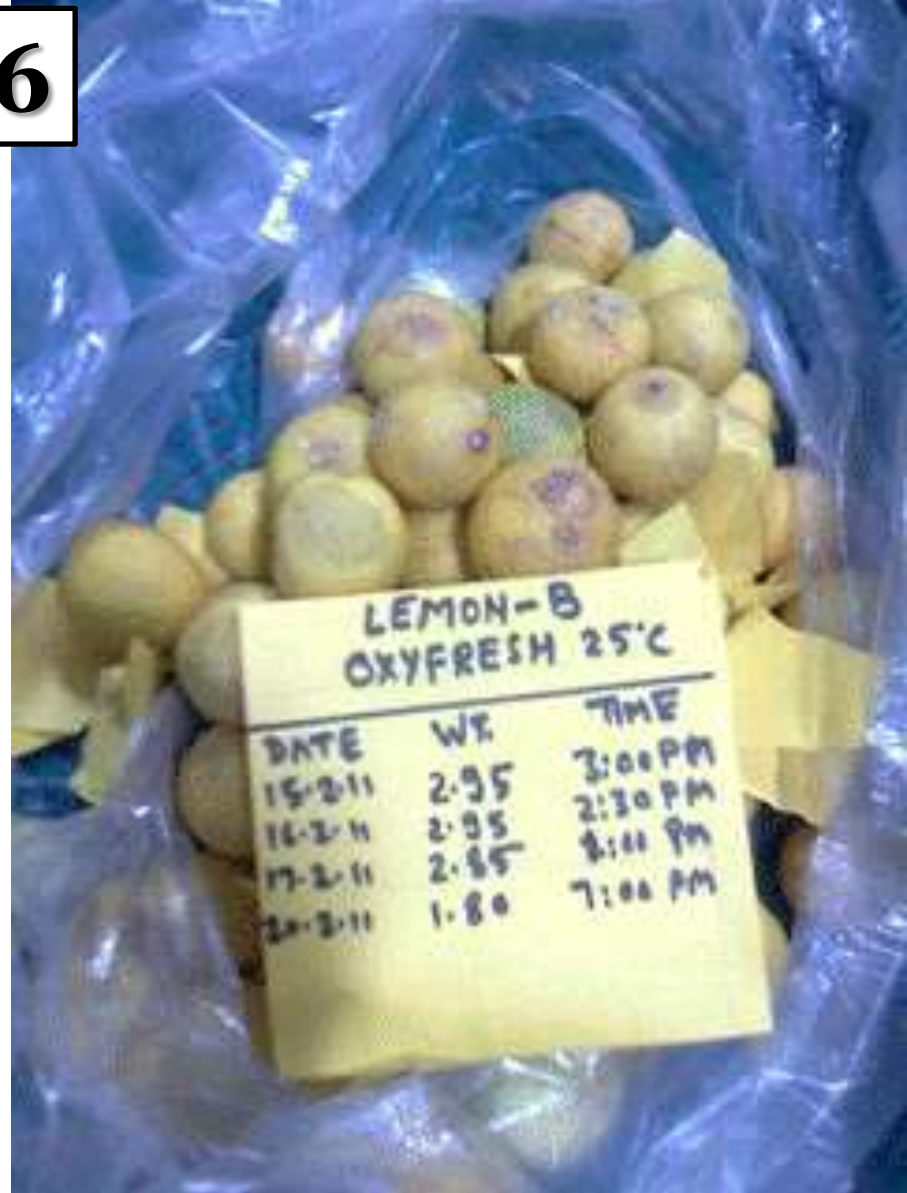 6
LEMON-B
OXYFRESH 25°C
DATE WT. TIME
15-2-11 2.95 3:00 PM
16-2-11 2.95 2:30 PM
17-2-11 2.85 PM
20-2-11 1.80 7:00 PM